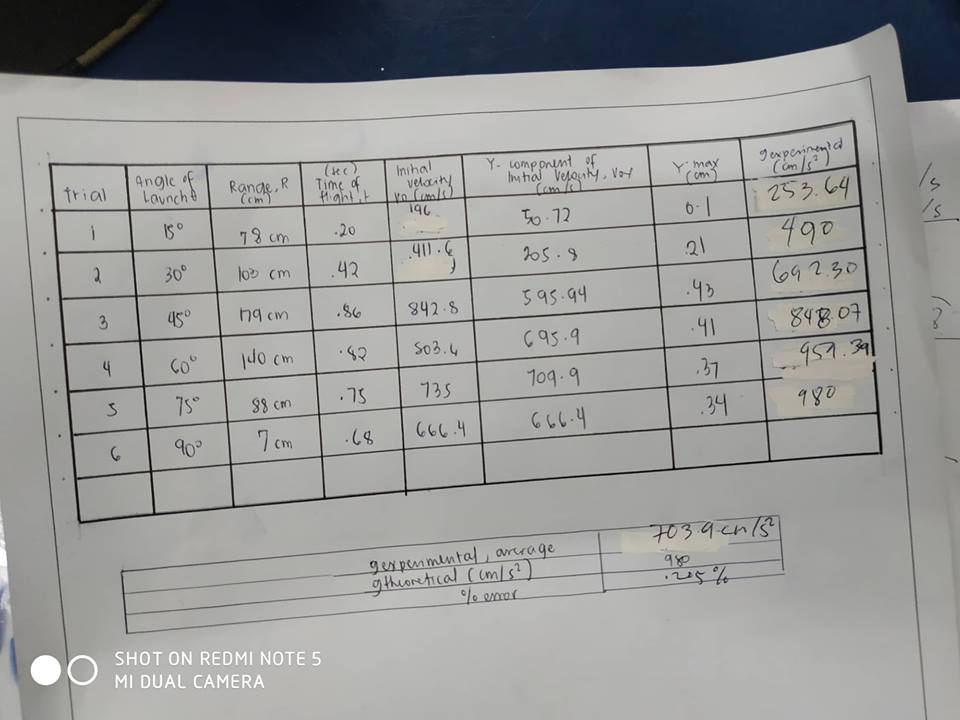 trial Angle of Launch θ Range, R (cm) (sec) Time of flight, t Initial velocity vo (cm/s) Y-component of Initial Velocity, Voy (cm/s) Y-max (cm) gexperimental (cm/s²)
1 15° 78 cm .20 196 50.72 0.1 253.64
2 30° 100 cm .42 .411.6 205.8 .21 490
3 45° 179 cm .86 842.8 595.94 .43 692.30
4 60° 140 cm .82 803.6 695.9 .41 848.07
5 75° 88 cm .75 735 709.9 .37 959.39
6 90° 7 cm .68 666.4 666.4 .34 980
gexperimental, average 703.9 cm/s²
gtheoretical (cm/s²) 980
% error .205%
SHOT ON REDMI NOTE 5
MI DUAL CAMERA